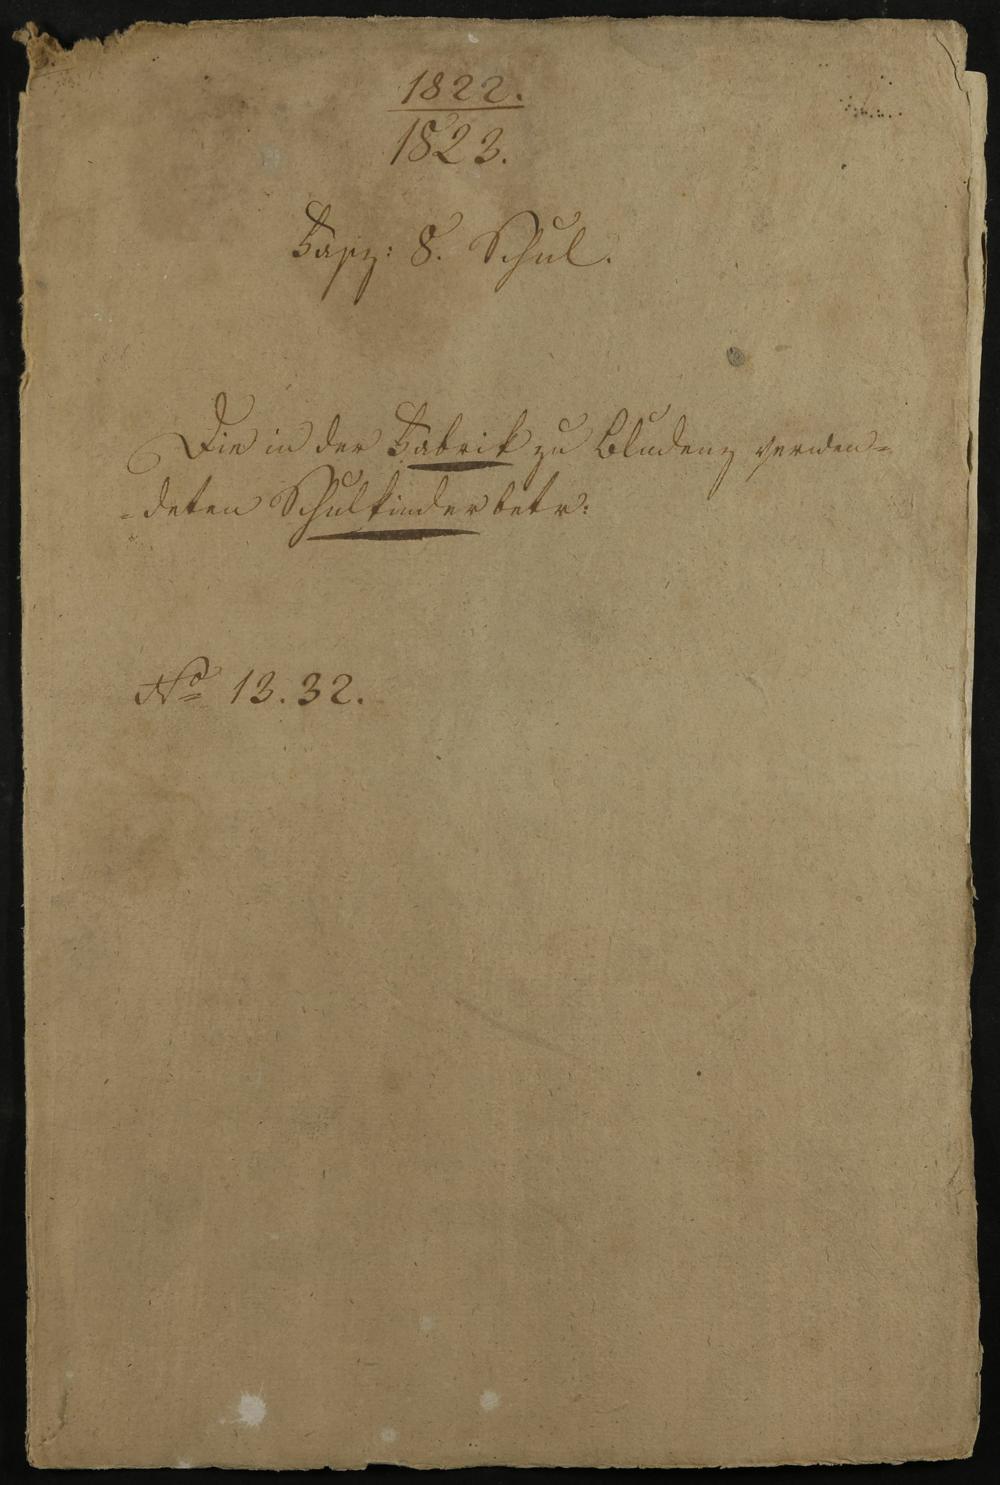 1822.
1823.
Fasz: 8. Schul.
Die in der Fabrik zu Bludenz verwen=
=deten Schulkinder betr:
No 13.32.